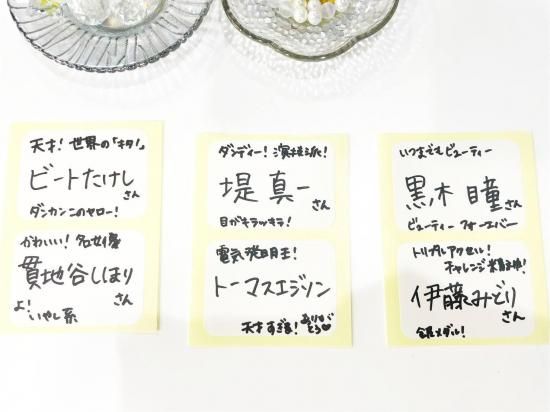 天才！世界の「キタノ」
ビートたけし
さん
ダンカンこのヤロー！
かわいい！
貫地谷しほり
さん
よ！いやし系
ダンディー！演技派！
堤真一
さん
目がキラッキラ！
電気発明王！
トーマスエジソン
天才すぎる！ありがとう♡
いつまでもビューティー
黒木瞳
さん
ビューティーフォーエバー
トリプルアクセル！
チャレンジ精神！
伊藤みどり
さん
銀メダル！